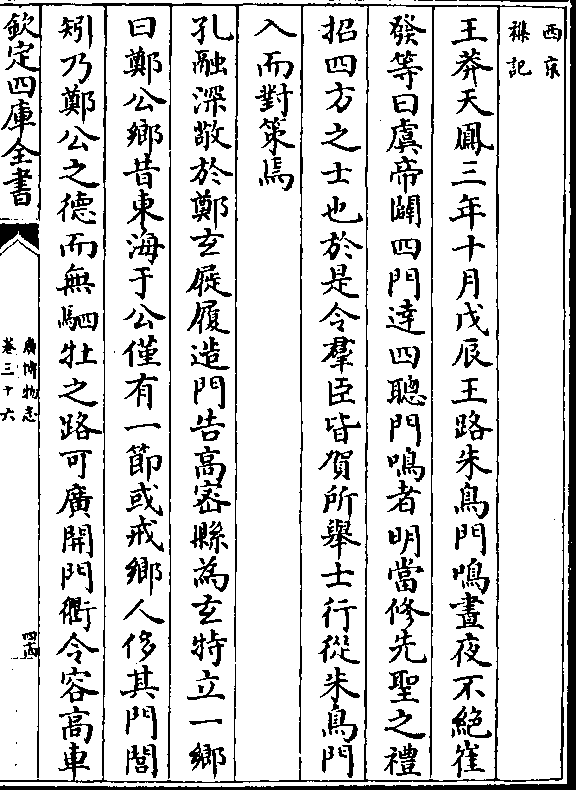 西京
雜記
王莽天鳳三年十月戊辰王路朱鳥門鳴晝夜不絶崔
發等曰虞帝闢四門達四聰門鳴者明當修先聖之禮
招四方之士也於是令羣臣皆賀所舉士行從朱鳥門
入而對策焉
孔融深敬於鄭玄屣履造門告高密縣為玄特立一鄉
曰鄭公鄉昔東海于公僅有一節或戒鄉人侈其門閭
矧乃鄭公之德而無駟牡之路可廣開門衢令容高車
欽定四庫全書
廣博物志
卷三十六
四十四